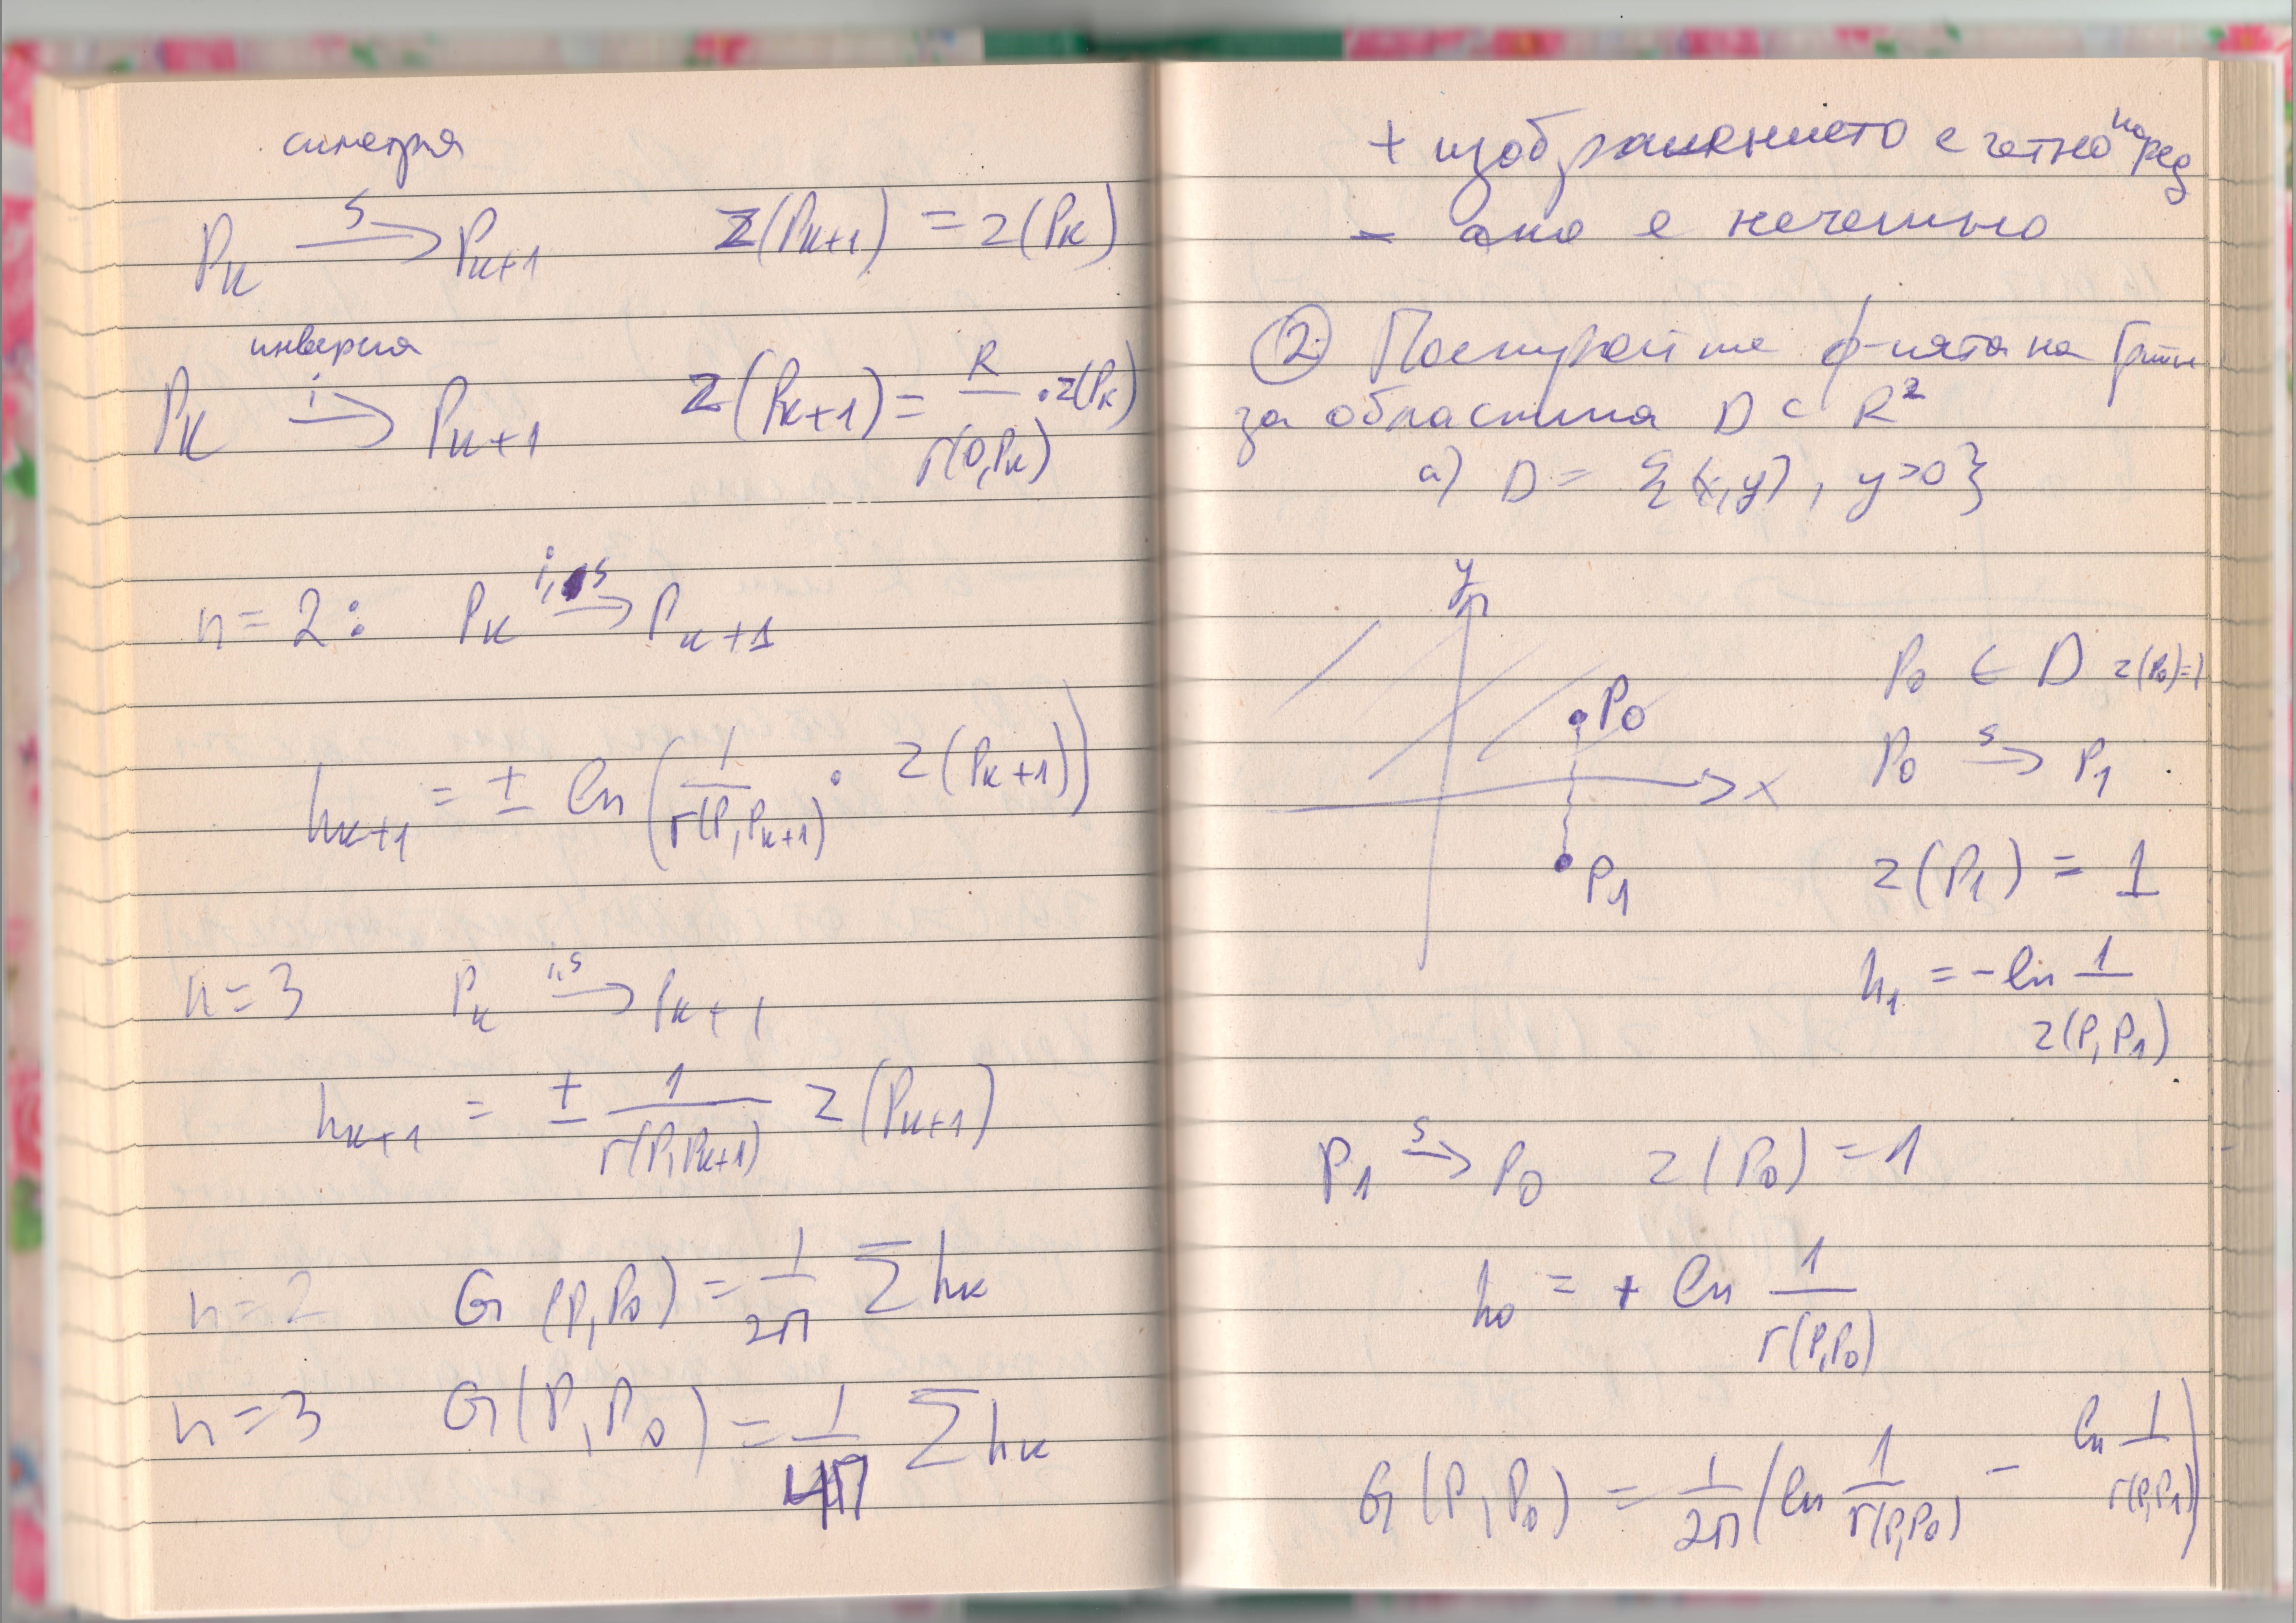 симетрия
Pₖ →ˢ Pₖ₊₁ z(Pₖ₊₁) = z(Pₖ)
инверсия
Pₖ →ⁱ Pₖ₊₁ z(Pₖ₊₁) = R/r(0,Pₖ) . z(Pₖ)
n = 2 : Pₖ →^{i,s} Pₖ₊₁
hₖ₊₁ = ± ln(1/r(P,Pₖ₊₁) . z(Pₖ₊₁))
n = 3 Pₖ →^{i,s} Pₖ₊₁
hₖ₊₁ = ± 1/r(P,Pₖ₊₁) z(Pₖ₊₁)
n = 2 G(P,P₀) = 1/2π ∑hₖ
n = 3 G(P,P₀) = 1/4π ∑hₖ
+ изображението е четно по ред
- ако е нечетно
② Постройте ф-цията на Грийн
за областта D ⊂ R²
а) D = {(x,y), y>0}
y
P₀
x
P₁
P₀ ∈ D z(P₀)=1
P₀ →ˢ P₁
z(P₁) = 1
h₁ = -ln 1/z(P,P₁)
P₁ →ˢ P₀ z(P₀) = 1
h₀ = + ln 1/r(P,P₀)
G(P,P₀) = 1/2π (ln 1/r(P,P₀) - ln 1/r(P,P₁))